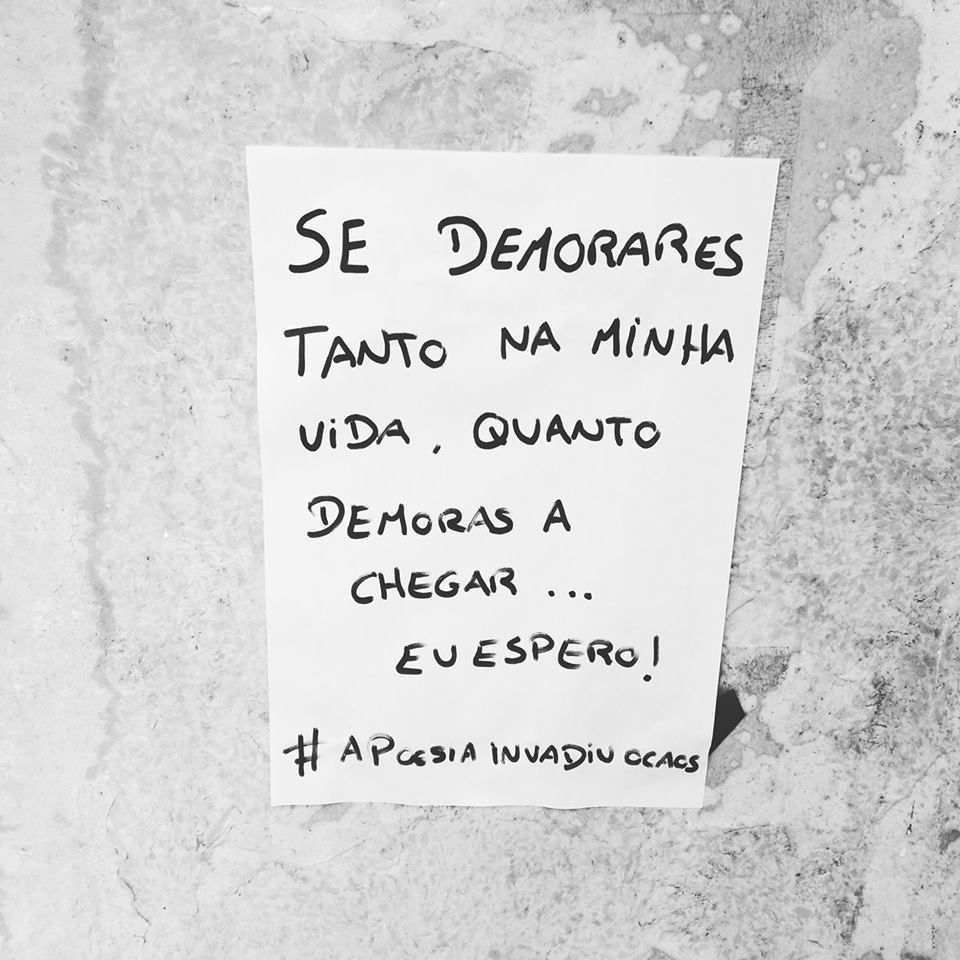 SE DEMORARES
TANTO NA MINHA
VIDA, QUANTO
DEMORAS A
CHEGAR ...
EU ESPERO!
# APOESIA INVADIU OCAOS